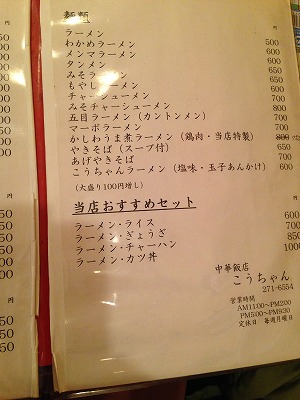 麺類
円
ラーメン 500
わかめラーメン 600
メンマラーメン 600
タンメン 650
みそラーメン
もやしラーメン
チャーシューメン 700
みそチャーシューメン 800
五目ラーメン（カントンメン） 700
マーボラーメン 700
かしわうま煮ラーメン（鶏肉・当店特製） 800
やきそば（スープ付） 650
あげやきそば 700
こうちゃんラーメン（塩味・玉子あんかけ） 600
（大盛り100円増し）
当店おすすめセット
円
ラーメン・ライス 600
ラーメン・ぎょうざ 700
ラーメン・チャーハン 850
ラーメン・カツ丼 1000
中華飯店
こうちゃん
271-6554
営業時間
AM11:00〜PM2:00
PM5:00〜PM9:30
定休日 毎週月曜日